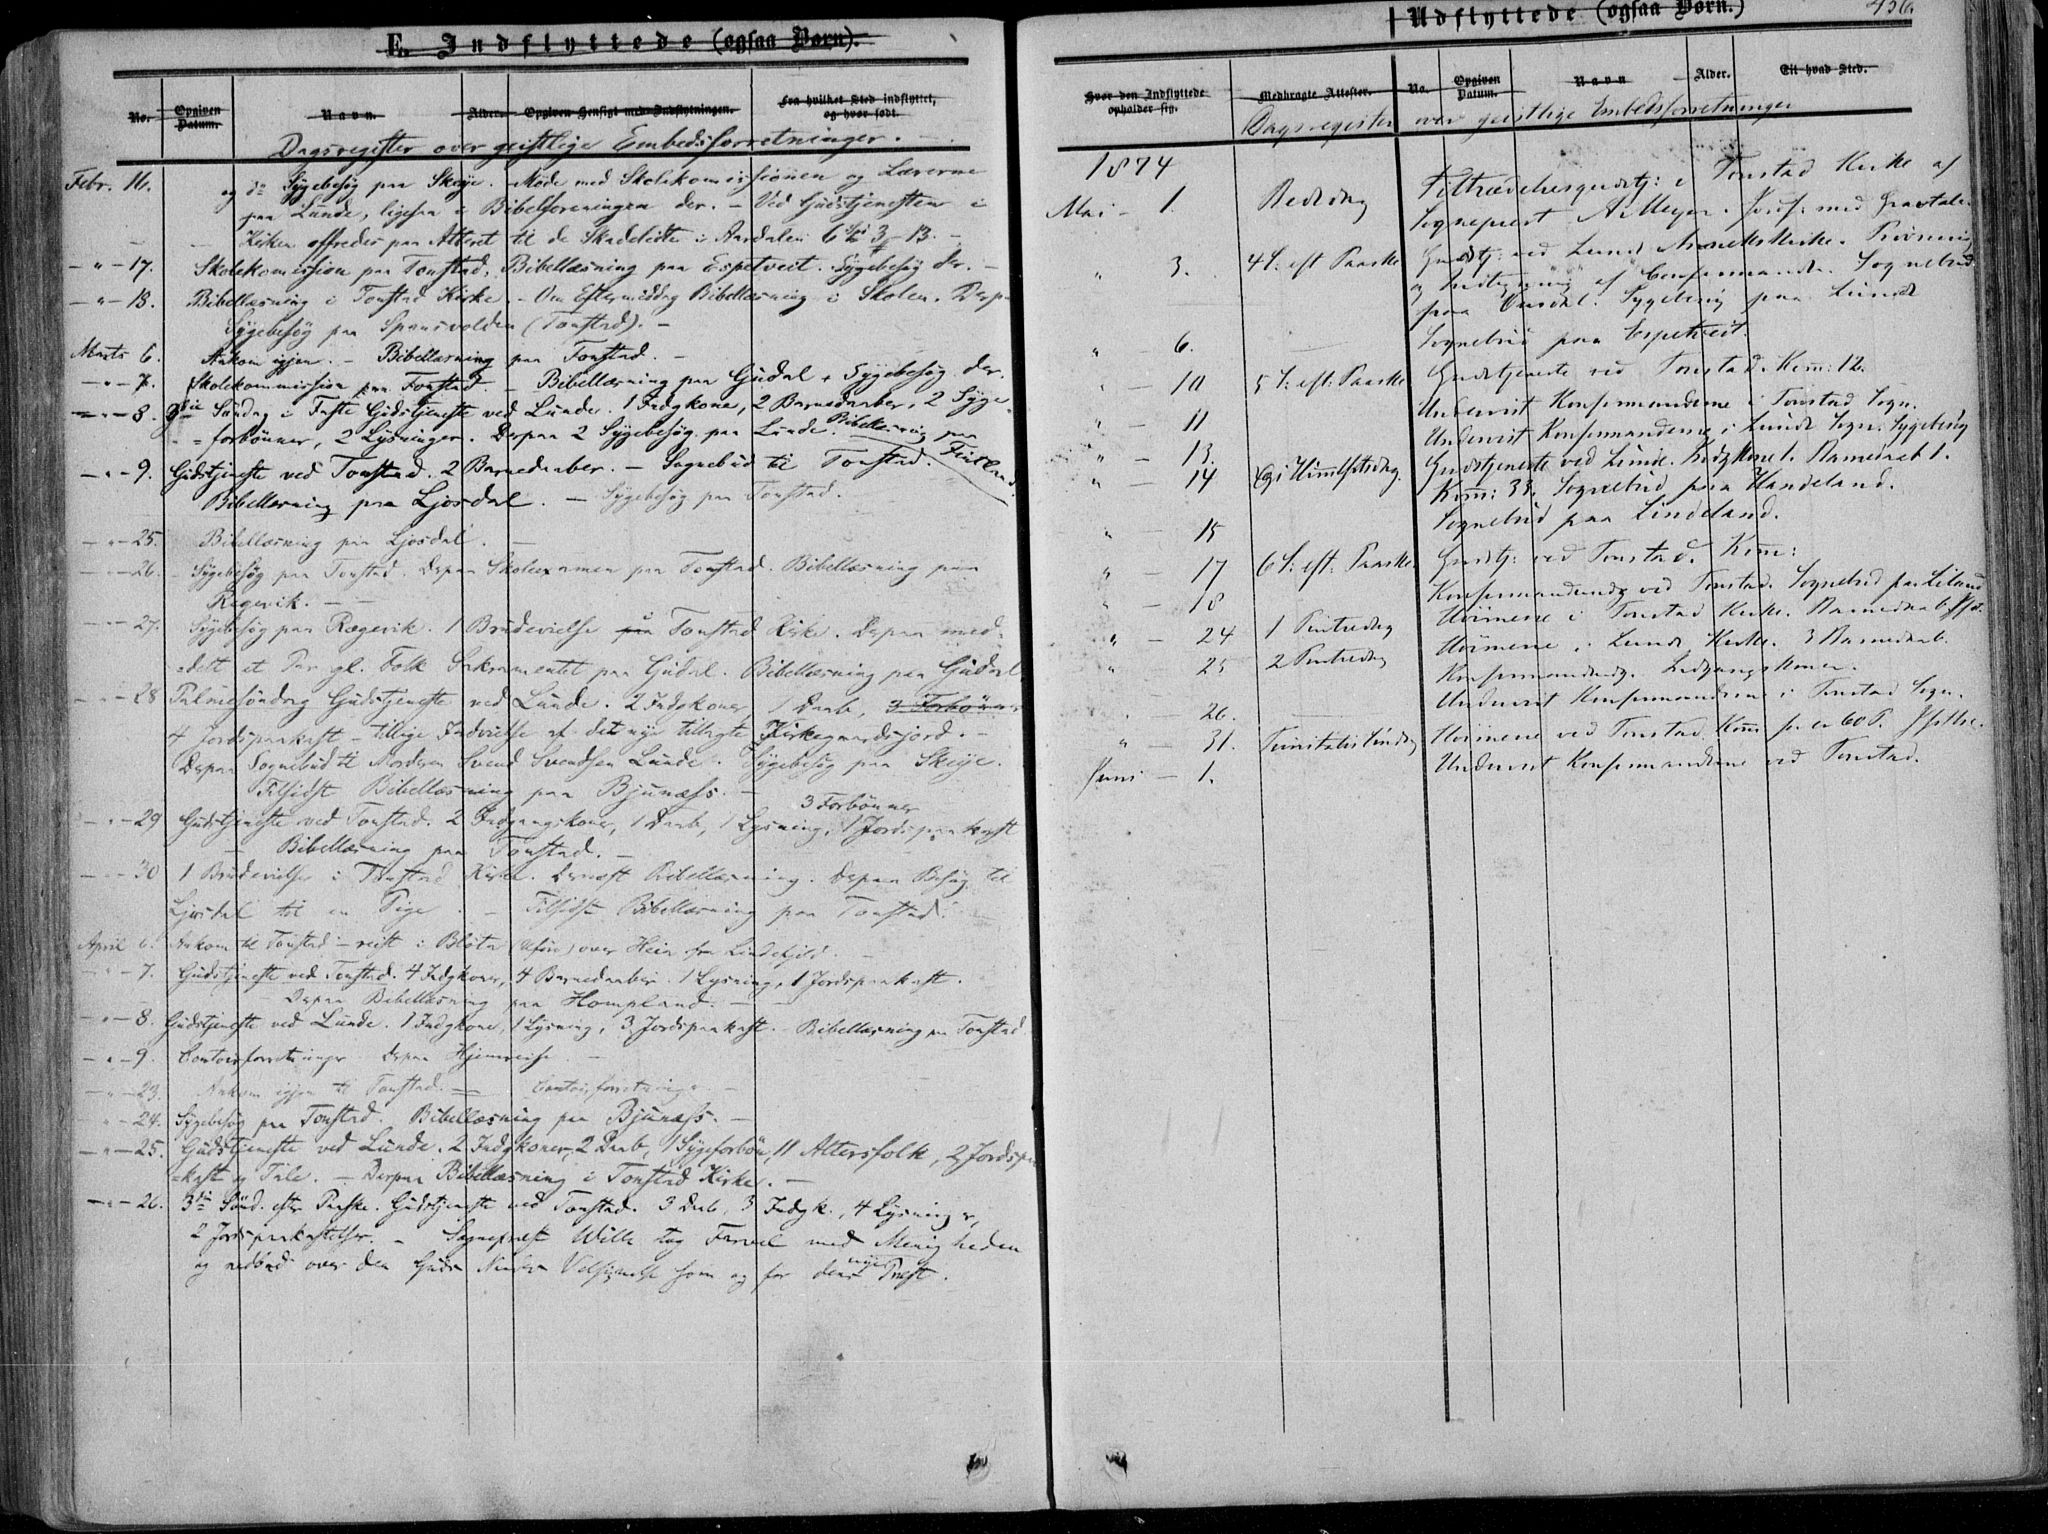 E. Indflyttede (ogsaa Børn).
No. Opgiven Datum. Navn. Alder. Opgiven Hensigt med Indflytningen. Fra hvilket Sted indflyttet, og hvor født.
Dagsregister over geistlige Embedsforretninger.
Febr. 16. og Sygebesøg paa Skeije. Møde med Skolekomissionen og Lærerne
paa Lunde, ligesaa i Bibelforeningen der. – Ved Gudstjenesten i
Kirken offredes paa Alteret til de Skadelidte i Aardalen 6 3 – 13. –
– " – 17. Skolekomission paa Tonstad. Bibellæsning paa Espetveit. Sygebesøg der. –
– " – 18. Bibellæsning i Tonstad Kirke. – Om Eftermiddag Bibellæsning i Skolen. Derpaa
Sygebesøg paa (Tonstad). –
Marts 6. Ankom igjen. – Bibellæsning paa Tonstad. –
– " – 7. Skolekommission paa Tonstad. – Bibellæsning paa Gudal + Sygebesøg der.
– " – 8. 3die Søndag i Faste Gudstjeneste ved Lunde. 1 Indgkone, 2 Barnedaaber, 2 Syge-
forbønner, 2 Lysninger. Derpaa 2 Sygebesøg paa Lunde. Bibellæsning paa
Fintland.
– " – 9. Gudstjeneste ved Tonstad. 2 Barnedaaber. – Sognebud til Tonstad.
Bibellæsning paa Ljosdal. – Sygebesøg paa Tonstad.
– " – 25. Bibellæsning paa Ljosdal. –
– " – 26. – Sygebesøg paa Tonstad. Derpaa Skoleexamen paa Tonstad. Bibellæsning paa
Regevik. –
– " – 27. Sygebesøg paa Rægevik. 1 Brudevielse i Tonstad Kirke. Derpaa med-
delt et Par gl. Folk Sakramentet paa Gudal. Bibellæsning paa Gudal
– " – 28 Palmesøndag Gudstjeneste ved Lunde. 2 Indgkoner, 1 Daab, 3 Forbønner
4 Jordspaakast – tillige Indvielse af det nye tillagte Kirkegaardsjord. –
Derpaa Sognebud til Svend Svendsen Lunde. Sygebesøg paa Skeije.
Tilsidst Bibellæsning paa Bjunæss. –
3 Forbønner
– " – 29 Gudstjeneste ved Tonstad. 2 Indgangskoner, 1 Daab, 1 Lysning, 1 Jordspaakast
– Bibellæsning paa Tonstad. –
– " – 30 1 Brudevielse i Tonstad Kirke. Dernæst Bibellæsning. Derpaa Besøg til
Ljosdal til en Pige. – Tilsidst Bibellæsning paa Tonstad.
April 6. Ankom til Tonstad – reist i over Heia fra
– " – 7. Gudstjeneste ved Tonstad. 4 Indgkoner, 4 Barnedaaber. 1 Lysning, 1 Jordspaakast.
Derpaa Bibellæsning paa Hompland. –
– " – 8. Gudstjeneste ved Lunde. 1 Indgkone, 1 Lysning, 3 Jordspaakast. Bibellæsning paa Tonstad
– " – 9. Contoirforretninger. Derpaa Hjemreise. –
– " – 23. Ankom igjen til Tonstad. – Contoirforretninger. –
– " – 24. Sygebesøg paa Tonstad. Bibellæsning paa Bjunæss. –
– " – 25. Gudstjeneste ved Lunde. 2 Indgkoner, 2 Daab, 1 Sygeforbøn, 11 Altersfolk, 2 Jordspaa-
kast og Tale. – Derpaa Bibellæsning i Tonstad Kirke. –
– " – 26. 3die Sønd. efter Paaske. Gudstjeneste ved Tonstad. 3 Daab, 3 Indgk., 4 Lysninger,
2 Jordspaakastelser. – Sognepræst Wille tog Farvel med Menigheden
og nedbad over den Guds Velsignelse som og for dens nye Præst.
Udflyttede (ogsaa Børn.)
Hvor den Indflyttede opholder sig. Medbragte Attester. No. Opgiven Datum. Navn Alder. Til hvad Sted.
Dagsregister over geistlige Embedsforretninger
1874
Mai – 1. Bededag Tiltrædelsesgudstj: i Tonstad Kirke af
Sognepræst A. Meyer.
" 3. 4 S: eft Paaske Gudstj: ved Lunde Annekskirke. Prøvning
og af Confirmander. Sognebud
paa Ousdal. Sygebesøg paa Lunde
" – 6. Sognebud paa Espetveit.
" – 10 5 S: eft: Paaske Gudstjeneste ved Tonstad. Kom: 12.
" – 11 Undervist Konfirmanderne i Tonstad Sogn.
" – 13. Undervist Konfirmanderne i Lunde Sogn. Sygebesøg
" – 14 Chr: Himmelfartsdag. Gudstjeneste ved Lunde. Indgkone 1. Barnedaab 1.
Kom: 33. Sognebud paa Handeland.
" – 15 Sognebud paa Lindeland.
" – 17 6 S: eft: Paaske. Gudstj: ved Tonstad. Kom:
" – 18 Konfirmandundg ved Tonstad. Sognebud paa Liland
" – 24 1 Pintsedag Høimesse i Tonstad Kirke. Barnedaab
" 25 2 Pintsedag Høimesse i Lunde Kirke. 3 Barnedaab.
Konfirmandundg. Indgangskoner.
– 26. Undervist Konfirmanderne i Tonstad Sogn.
" – 31. Trinitatis Søndag Høimesse ved Tonstad. Kom:
Juni – 1. Undervist Konfirmanderne ved Tonstad.